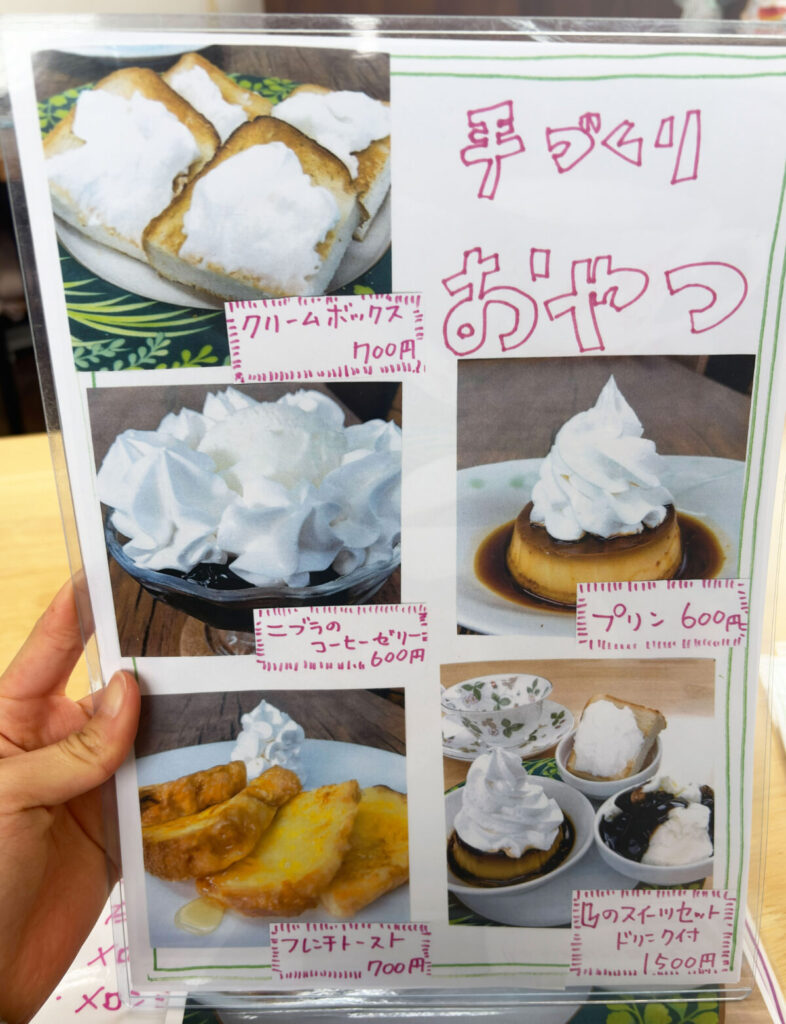 手づくり
おやつ
クリームボックス
700円
ニブラの
コーヒーゼリー
600円
プリン 600円
フレンチトースト
700円
のスイーツセット
ドリンク付
1500円
メロン